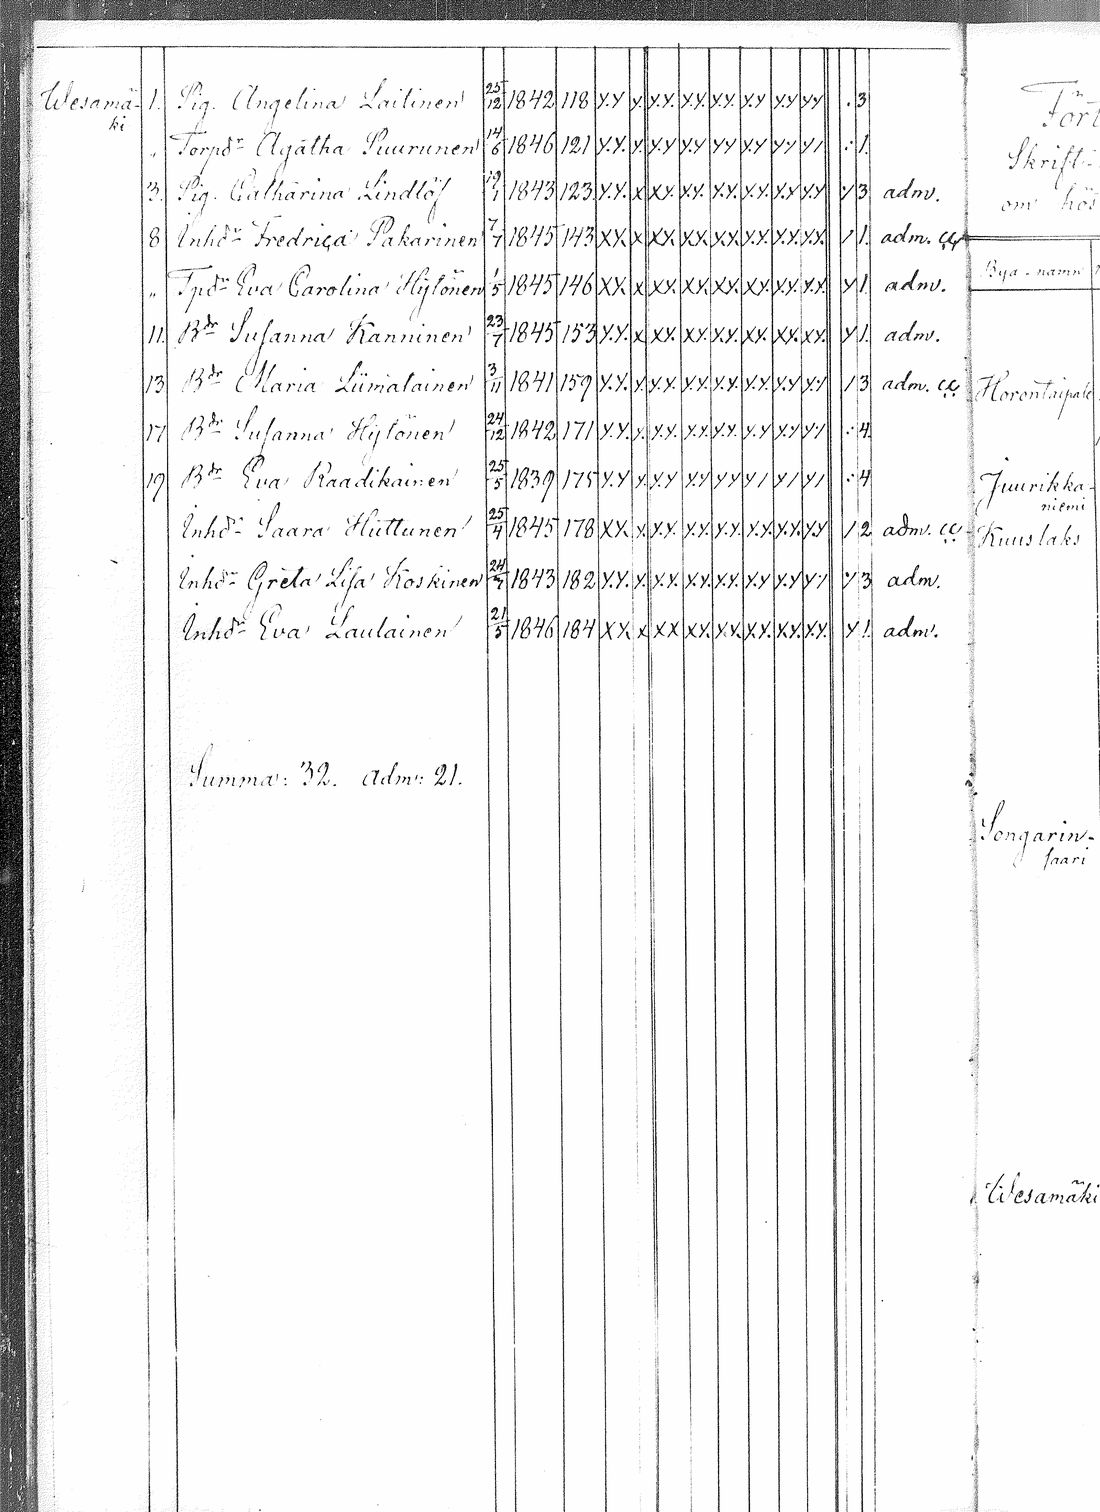 Wesamä- 1. Pig. Angelina Laitinen 25/12 1842 118 x.y x. x.y. x.y. x.y x.y x.y y.y . 3
ki
„ Torpdr Agatha Puurunen 14/6 1846 121 y.y. x. x.y y.y y.y y.y y.y y1 :1.
3. Pig. Catharina Lindlöf 19/1 1843 123 y.y. x x.y. xy. x.y. x.y. x.y. y.y y 3 adm.
8 Inhdr Fredrica Pakarinen 7/7 1845 143 xx x xx. xx. xx. xx. xx. xx. / 1. adm.
„ Tpdr Eva Carolina Hylönen 1/5 1845 146 xx. x xx. xx. xx. xx. xx. xx. y 1. adm.
11. Bdr Susanna Kanninen 23/7 1845 153 y.y. x xx. xx. x.y. xx. xx. xy. y 1. adm.
13 Bdr Maria Liimatainen 3/11 1841 159 y.y. x x.y. x.y. x.y. x.y. x.y. y.y / 3 adm.
17 Bdr Susanna Hylönen 24/12 1842 171 y.y. x. x.y. x.y. x.y. x.y y.y y1 : 4.
19 Bdr Eva Raadikainen 25/5 1839 175 x.y x x.y x.y y.y y1 y1 y1 : 4
Inhdr Saara Huttunen 25/4 1845 178 xx. x x.y. x.y. x.y. x.y. x.y. y.y / 2 adm.
Inhdr Greta Lisa Koskinen 24/7 1843 182 x.y. x x.y. x.y. x.y. x.y. x.y y1 y 3 adm.
Inhdr Eva Laulainen 21/5 1846 184 xx. x xx xy. x.y. xy. x.y. y.y. y 1. adm.
Summa: 32. Adm: 21.
Fört
Skrift-
om hös
Bya-namn
Horontaipale
Juurikka-
niemi
Kuuslaks
Songarin-
saari
Wesamäki